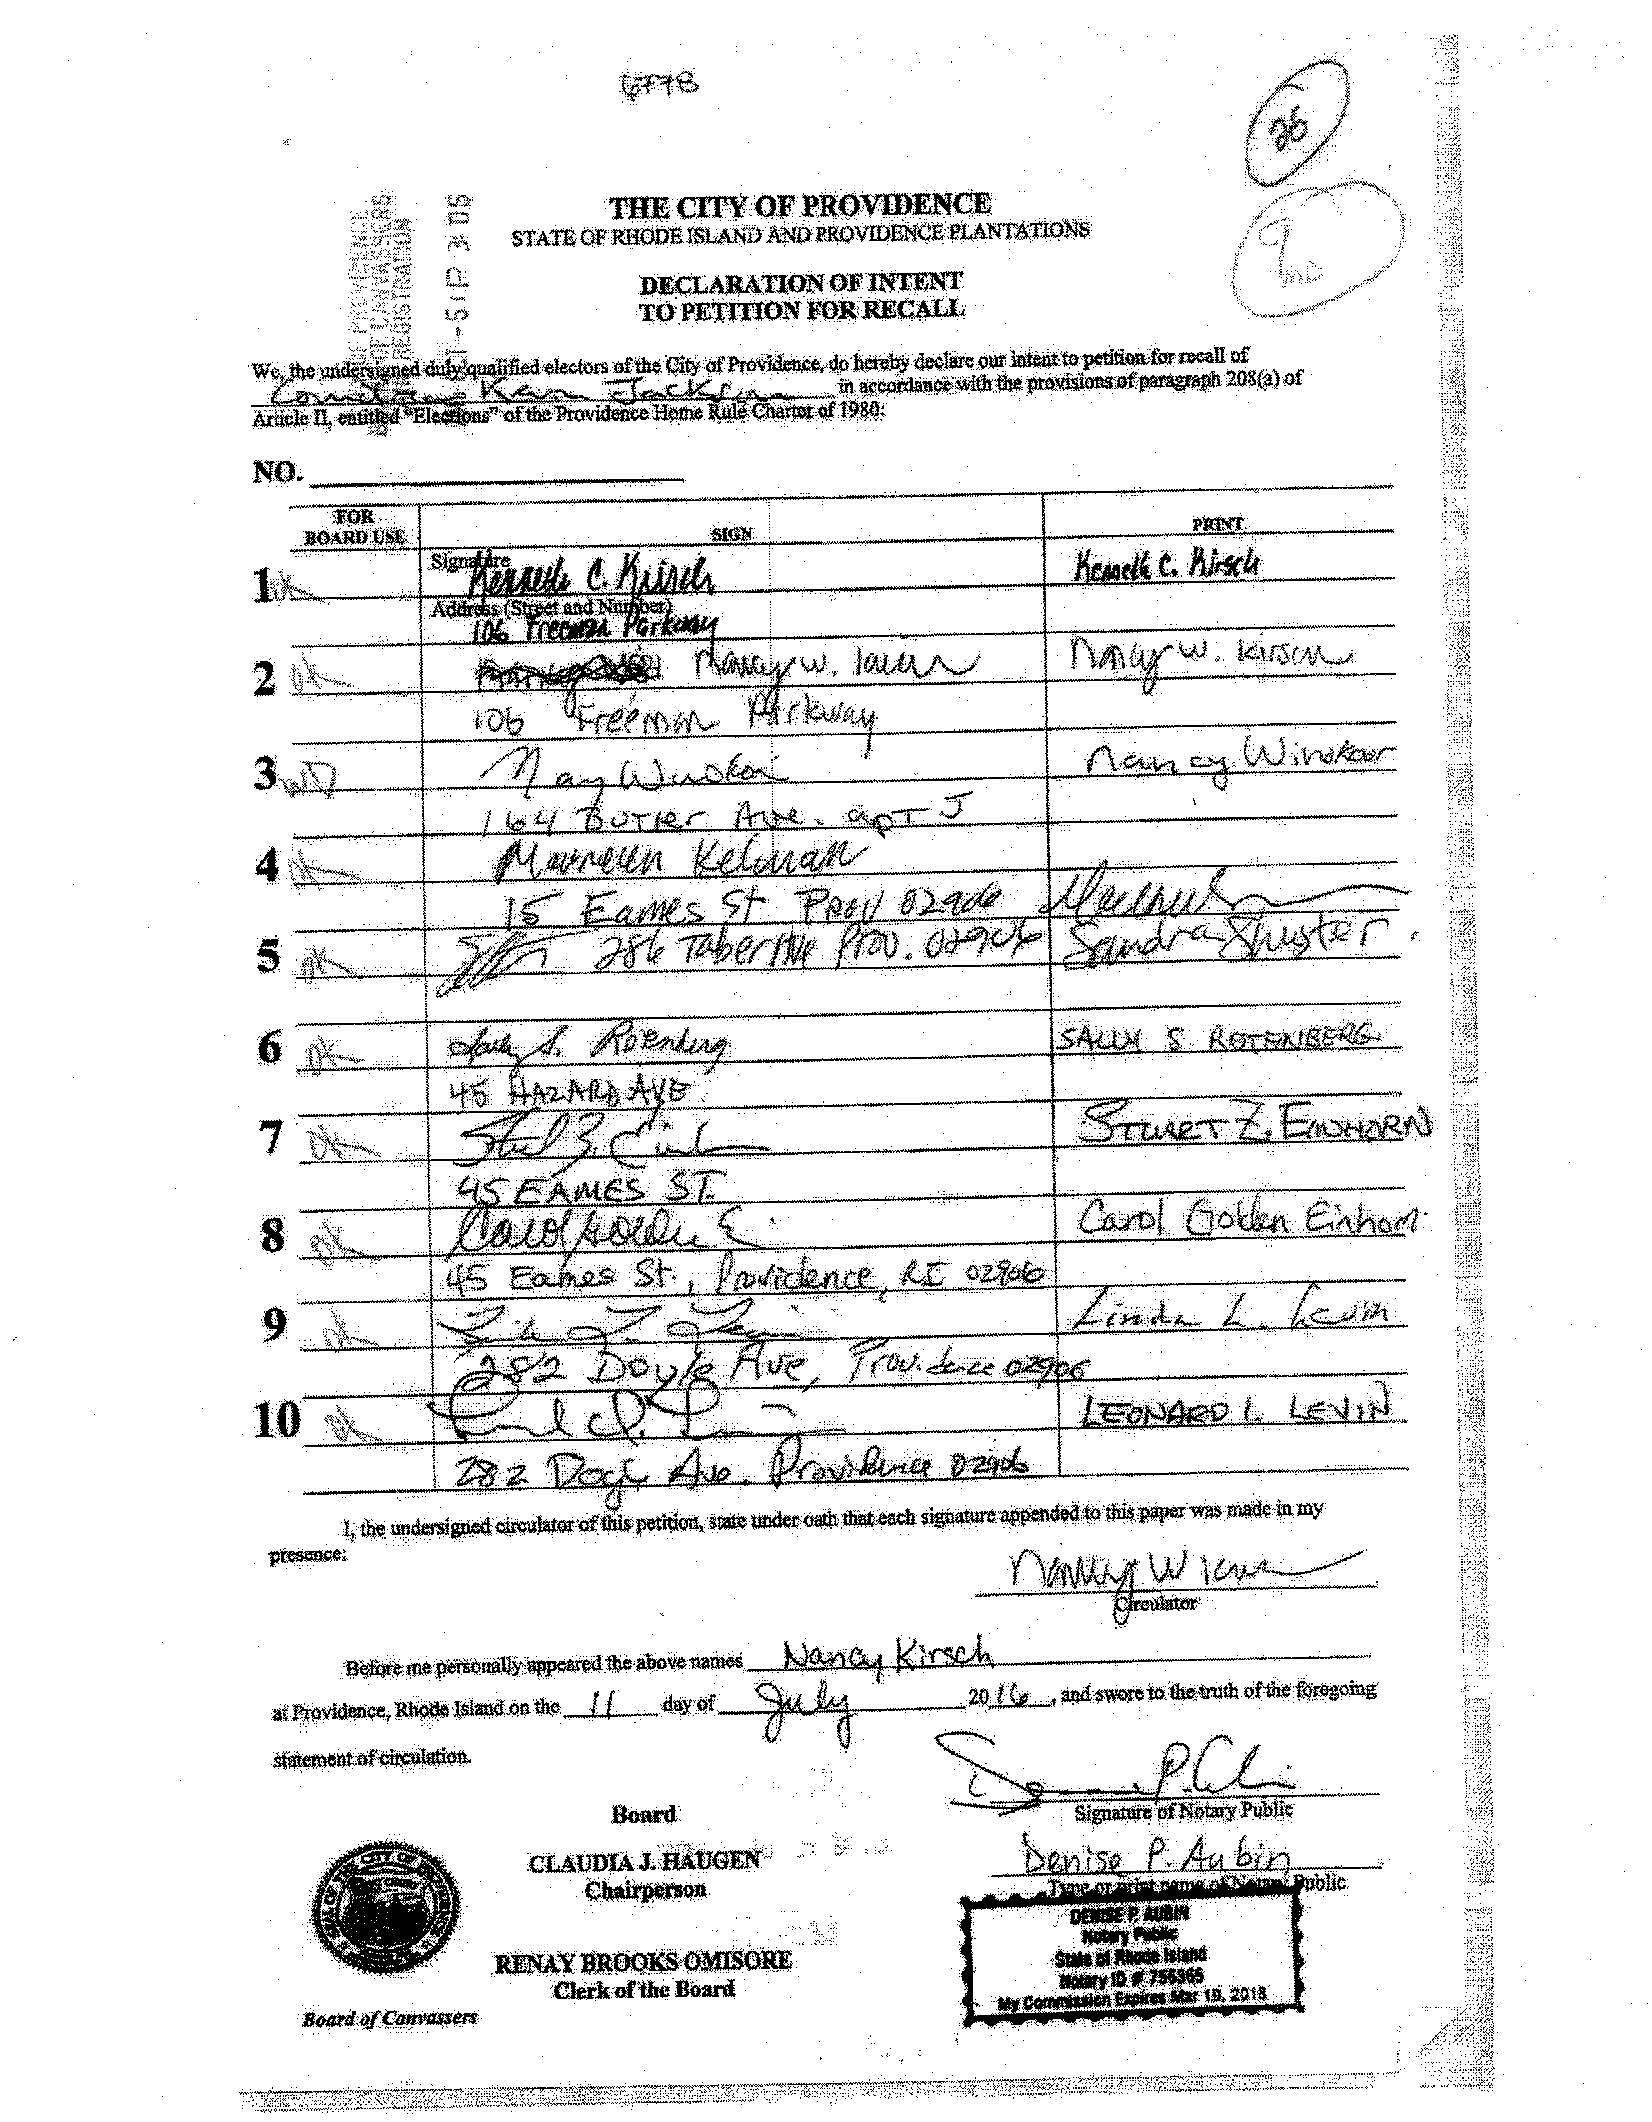 26
9
THE CITY OF PROVIDENCE
STATE OF RHODE ISLAND AND PROVIDENCE PLANTATIONS
DECLARATION OF INTENT
TO PETITION FOR RECALL
We, the undersigned duly qualified electors of the City of Providence, do hereby declare our intent to petition for recall of
Kevin Jackson in accordance with the provisions of paragraph 208(a) of
Article II, entitled "Elections" of the Providence Home Rule Charter of 1980:
NO.
FOR
BOARD USE
SIGN
PRINT
1 OK
Signature
Kenneth C. Kirsch
Kenneth C. Kirsch
Address (Street and Number)
106 Freeman Parkway
2 OK
Nancy W. Kirsch
Nancy W. Kirsch
106 Freeman Parkway
3
Nancy Winokoor
164 Butler Ave. apt J
4 OK
Maureen Kelman
15 Eames St Prov 02906
5 OK
286 Taber Ave Prov. 02906
Sandra Shuster
6 OK
Sally S. Rotenberg
SALLY S ROTENBERG
45 HAZARD AVE
7 OK
STUART Z. EINHORN
45 EAMES ST.
8 OK
Carol Golden E
Carol Golden Einhorn
45 Eames St., Providence, RI 02906
9 OK
Linda L. Levin
282 Doyle Ave, Providence 02906
10 OK
LEONARD I. LEVIN
282 Doyle Ave. Providence 02906
I, the undersigned circulator of this petition, state under oath that each signature appended to this paper was made in my
presence:
Nancy W Kirsch
Circulator
Before me personally appeared the above names Nancy Kirsch
at Providence, Rhode Island on the 11 day of July 2016, and swore to the truth of the foregoing
statement of circulation.
Signature of Notary Public
Denise P. Aubin
Type or print name of Notary Public
Board
CLAUDIA J. HAUGEN
Chairperson
RENAY BROOKS OMISORE
Clerk of the Board
Board of Canvassers
DENISE P AUBIN
Notary Public
State of Rhode Island
Notary ID # 756365
My Commission Expires Mar 19, 2018